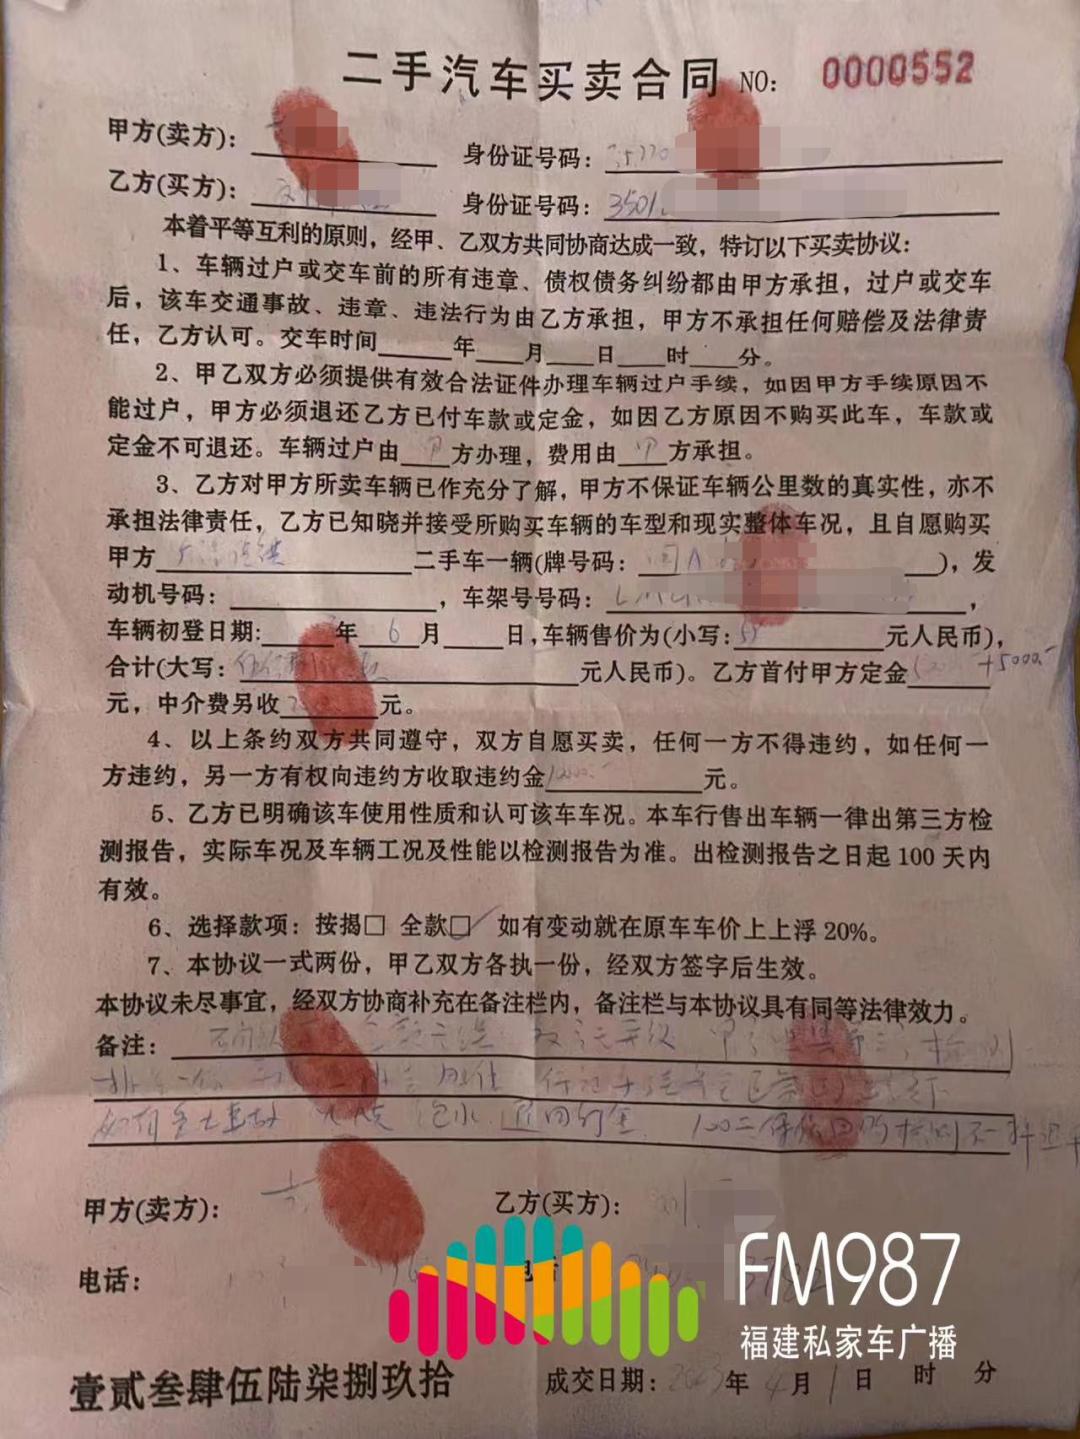 二手汽车买卖合同 NO: 0000552
甲方(卖方): 身份证号码:
乙方(买方): 身份证号码: 3501
本着平等互利的原则，经甲、乙双方共同协商达成一致，特订以下买卖协议：
1、车辆过户或交车前的所有违章、债权债务纠纷都由甲方承担，过户或交车
后，该车交通事故、违章、违法行为由乙方承担，甲方不承担任何赔偿及法律责
任，乙方认可。交车时间 年 月 日 时 分。
2、甲乙双方必须提供有效合法证件办理车辆过户手续，如因甲方手续原因不
能过户，甲方必须退还乙方已付车款或定金，如因乙方原因不购买此车，车款或
定金不可退还。车辆过户由 甲 方办理，费用由 甲 方承担。
3、乙方对甲方所卖车辆已作充分了解，甲方不保证车辆公里数的真实性，亦不
承担法律责任，乙方已知晓并接受所购买车辆的车型和现实整体车况，且自愿购买
甲方 二手车一辆(牌号码: 闽A )，发
动机号码: ，车架号号码: ，
车辆初登日期: 年 6 月 日，车辆售价为(小写: 元人民币)，
合计(大写: 元人民币)。乙方首付甲方定金 +5000
元，中介费另收 元。
4、以上条约双方共同遵守，双方自愿买卖，任何一方不得违约，如任何一
方违约，另一方有权向违约方收取违约金 元。
5、乙方已明确该车使用性质和认可该车车况。本车行售出车辆一律出第三方检
测报告，实际车况及车辆工况及性能以检测报告为准。出检测报告之日起 100 天内
有效。
6、选择款项: 按揭□ 全款□ 如有变动就在原车车价上上浮 20%。
7、本协议一式两份，甲乙双方各执一份，经双方签字后生效。
本协议未尽事宜，经双方协商补充在备注栏内，备注栏与本协议具有同等法律效力。
备注:
泡水 退回订金
甲方(卖方): 乙方(买方):
电话:
FM987
福建私家车广播
壹贰叁肆伍陆柒捌玖拾 成交日期: 2023 年 4 月 1 日 时 分